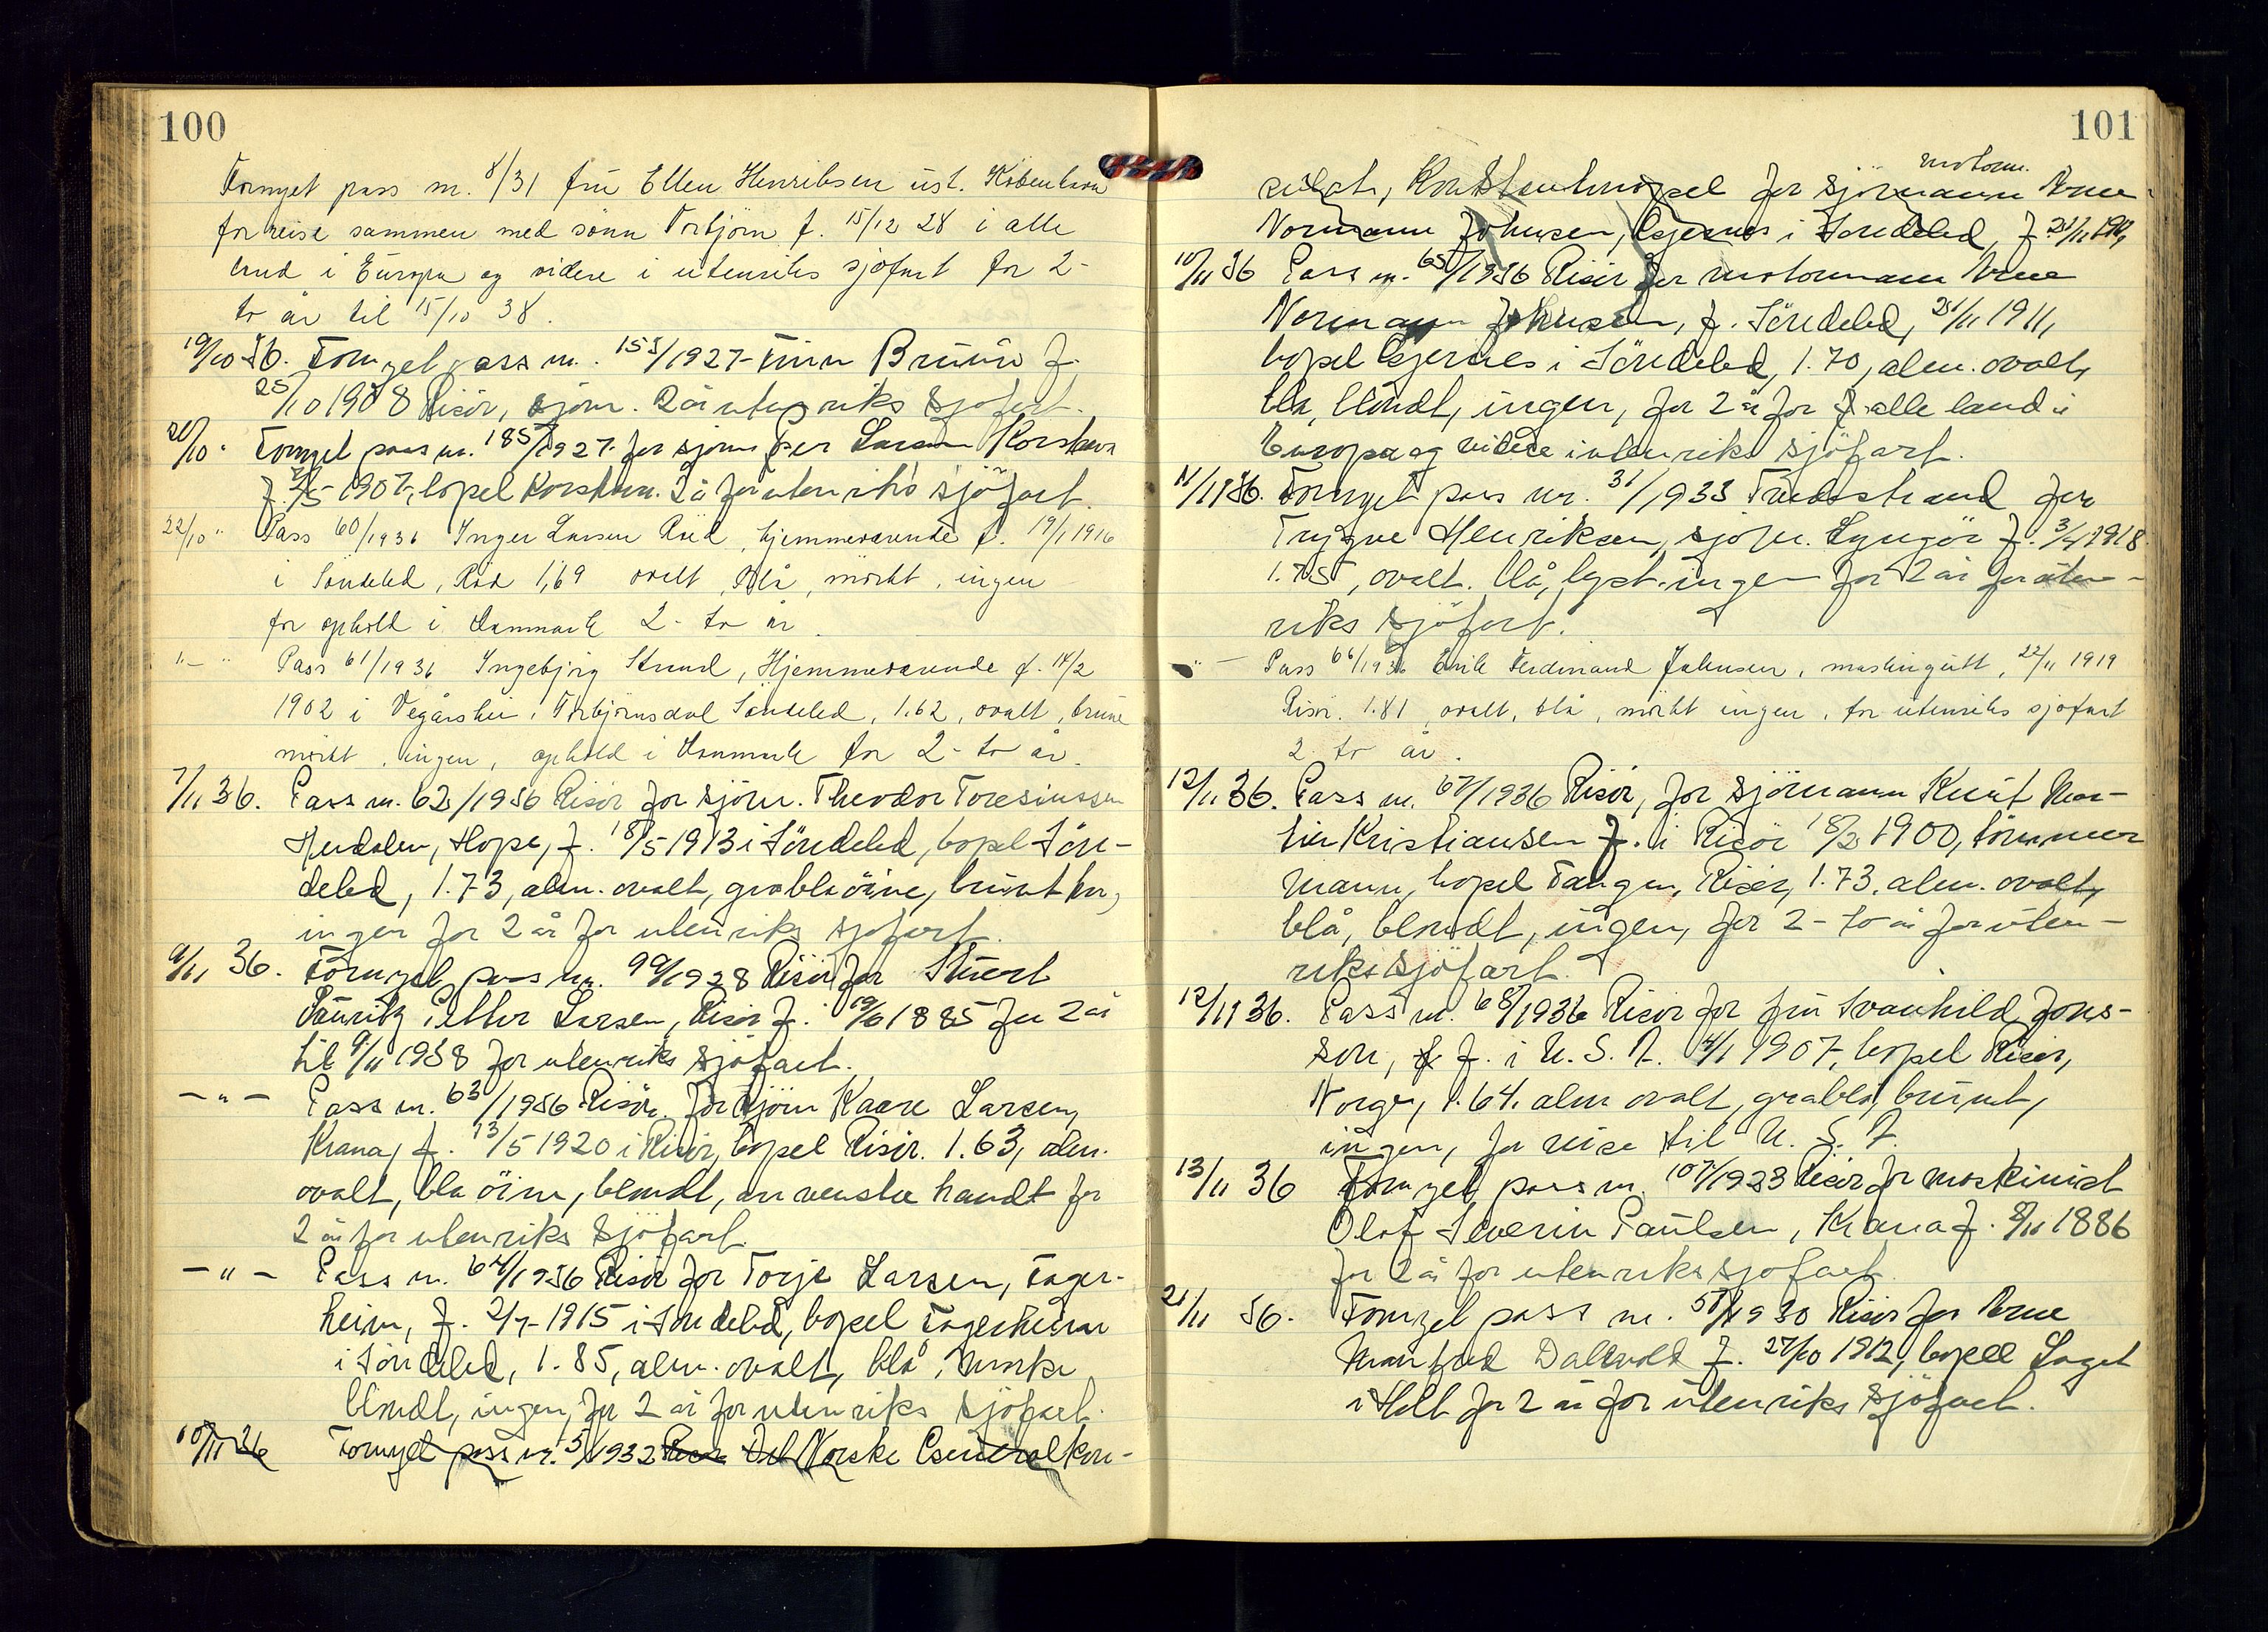 100
Fornyet pass nr. 8/31 fru Ellen Henriksen utst. Köbenhavn
for reise sammen med sönn Torbjörn f. 15/12 28 i alle
land i Europa og videre i utenriks sjöfart for 2-
to år til 15/10 38.
19/10 36. Fornyet pass nr. 153/1927 Finn Bruun f.
25/10 1908 Risör, sjöm. 2 år utenriks sjöfart.
20/10 " Fornyet pass nr. 185/1927 for sjöm. Per Larsen Korshavn
f. 1907, bopel Korshavn. 2 år for utenriks sjöfart.
22/10 " Pass 60/1936 Inger Larsen Röd, hjemmeværende f. 19/1 1916
i Söndeled, Röd 1,69 ovalt, blå, mörkt, ingen
for ophold i Danmark 2- to år.
"- " Pass 61/1936 Ingebjörg Strand, Hjemmeværende f. 14/2
1902 i Vegårshei, Torbjörnsdal Söndeled, 1.62, ovalt, brune
mörkt, ingen, ophold i Danmark for 2- to år.
7/11 36. Pass nr. 62/1936 Risör for sjöm. Theodor Toresinssen
Hope, f. 18/5 1913 i Söndeled, bopel Sön-
deled, 1.73, alm. ovalt, gråblå öine, brunt hår,
ingen for 2 år for utenriks sjöfart.
9/11 36. Fornyet pass nr. 99/1928 Risör for
Lauritz Petter Larsen, Risör f. 19/6 1885 for 2 år
til 9/11 1938 for utenriks sjöfart.
- " - Pass nr. 63/1936 Risör. for Björn Kaare Larsen,
Krana, f. 13/5 1920 i Risör, bopel Risör. 1.63, alm.
ovalt, blå öine, blondt, arr venstre handt for
2 år for utenriks sjöfart.
- " - Pass nr. 64/1936 Risör for Torje Larsen, Fager-
heim, f. 2/7 1915 i Söndeled, bopel Fagerheim
i Söndeled, 1.85, alm. ovalt, blå, mörke
blondt, ingen, for 2 år for utenriks sjöfart.
10/11 36 Fornyet pass nr. 5/1932 Risör Det Norske Generalkon-
101
motorm.
sulat, Konstantinopel for sjömann Arne
Normann Johnsen, Gjernes i Söndeled, f. 21/11 1911,
10/11 36 Pass nr. 65/1936 Risör for motormann Arne
Normann Johnsen, f. Söndeled, 21/11 1911,
bopel Gjernes i Söndeled, 1.70, alm. ovalt,
blå, blondt, ingen, for 2 år for alle land i
Europa og videre i utenriks sjöfart.
11/11 36. Fornyet pass nr. 31/1933 for
Trygve Henriksen, sjöm. Lyngör f. 3/4 1918.
1.75, ovalt. blå, lyst. ingen for 2 år for uten-
riks sjöfart.
" - Pass 66/1936 Erik Ferdinand Johnsen, maskingutt, 22/11 1919
Risör. 1.81, ovalt, blå, mörkt ingen, for utenriks sjöfart
2 to år.
12/11 36. Pass nr. 67/1936 Risör, for sjömann Knut Mar-
tin Kristiansen f. i Risör 18/3 1900, tömmer
mann, bopel Tangen, Risör, 1.73, alm. ovalt,
blå, blondt, ingen, for 2- to år for uten-
riks sjöfart.
12/11 36. Pass nr. 68/1936 Risör for fru Svanhild Jons-
son, f. i U.S.A. 4/1 1907, bopel Risör,
Norge, 1.64. alm ovalt, gråblå, brunt,
ingen, for reise til U.S.A.
13/11 36 Fornyet pass nr. 107/1923 Risör for maskinist
Olaf Severin Paulsen, Krana f. 8/11 1886
for 2 år for utenriks sjöfart.
21/11 36. Fornyet pass nr. 58/1930 Risör for Arne
Manfred Dalevold f. 27/10 1912, bopel Laget
i Holt for 2 år for utenriks sjöfart.